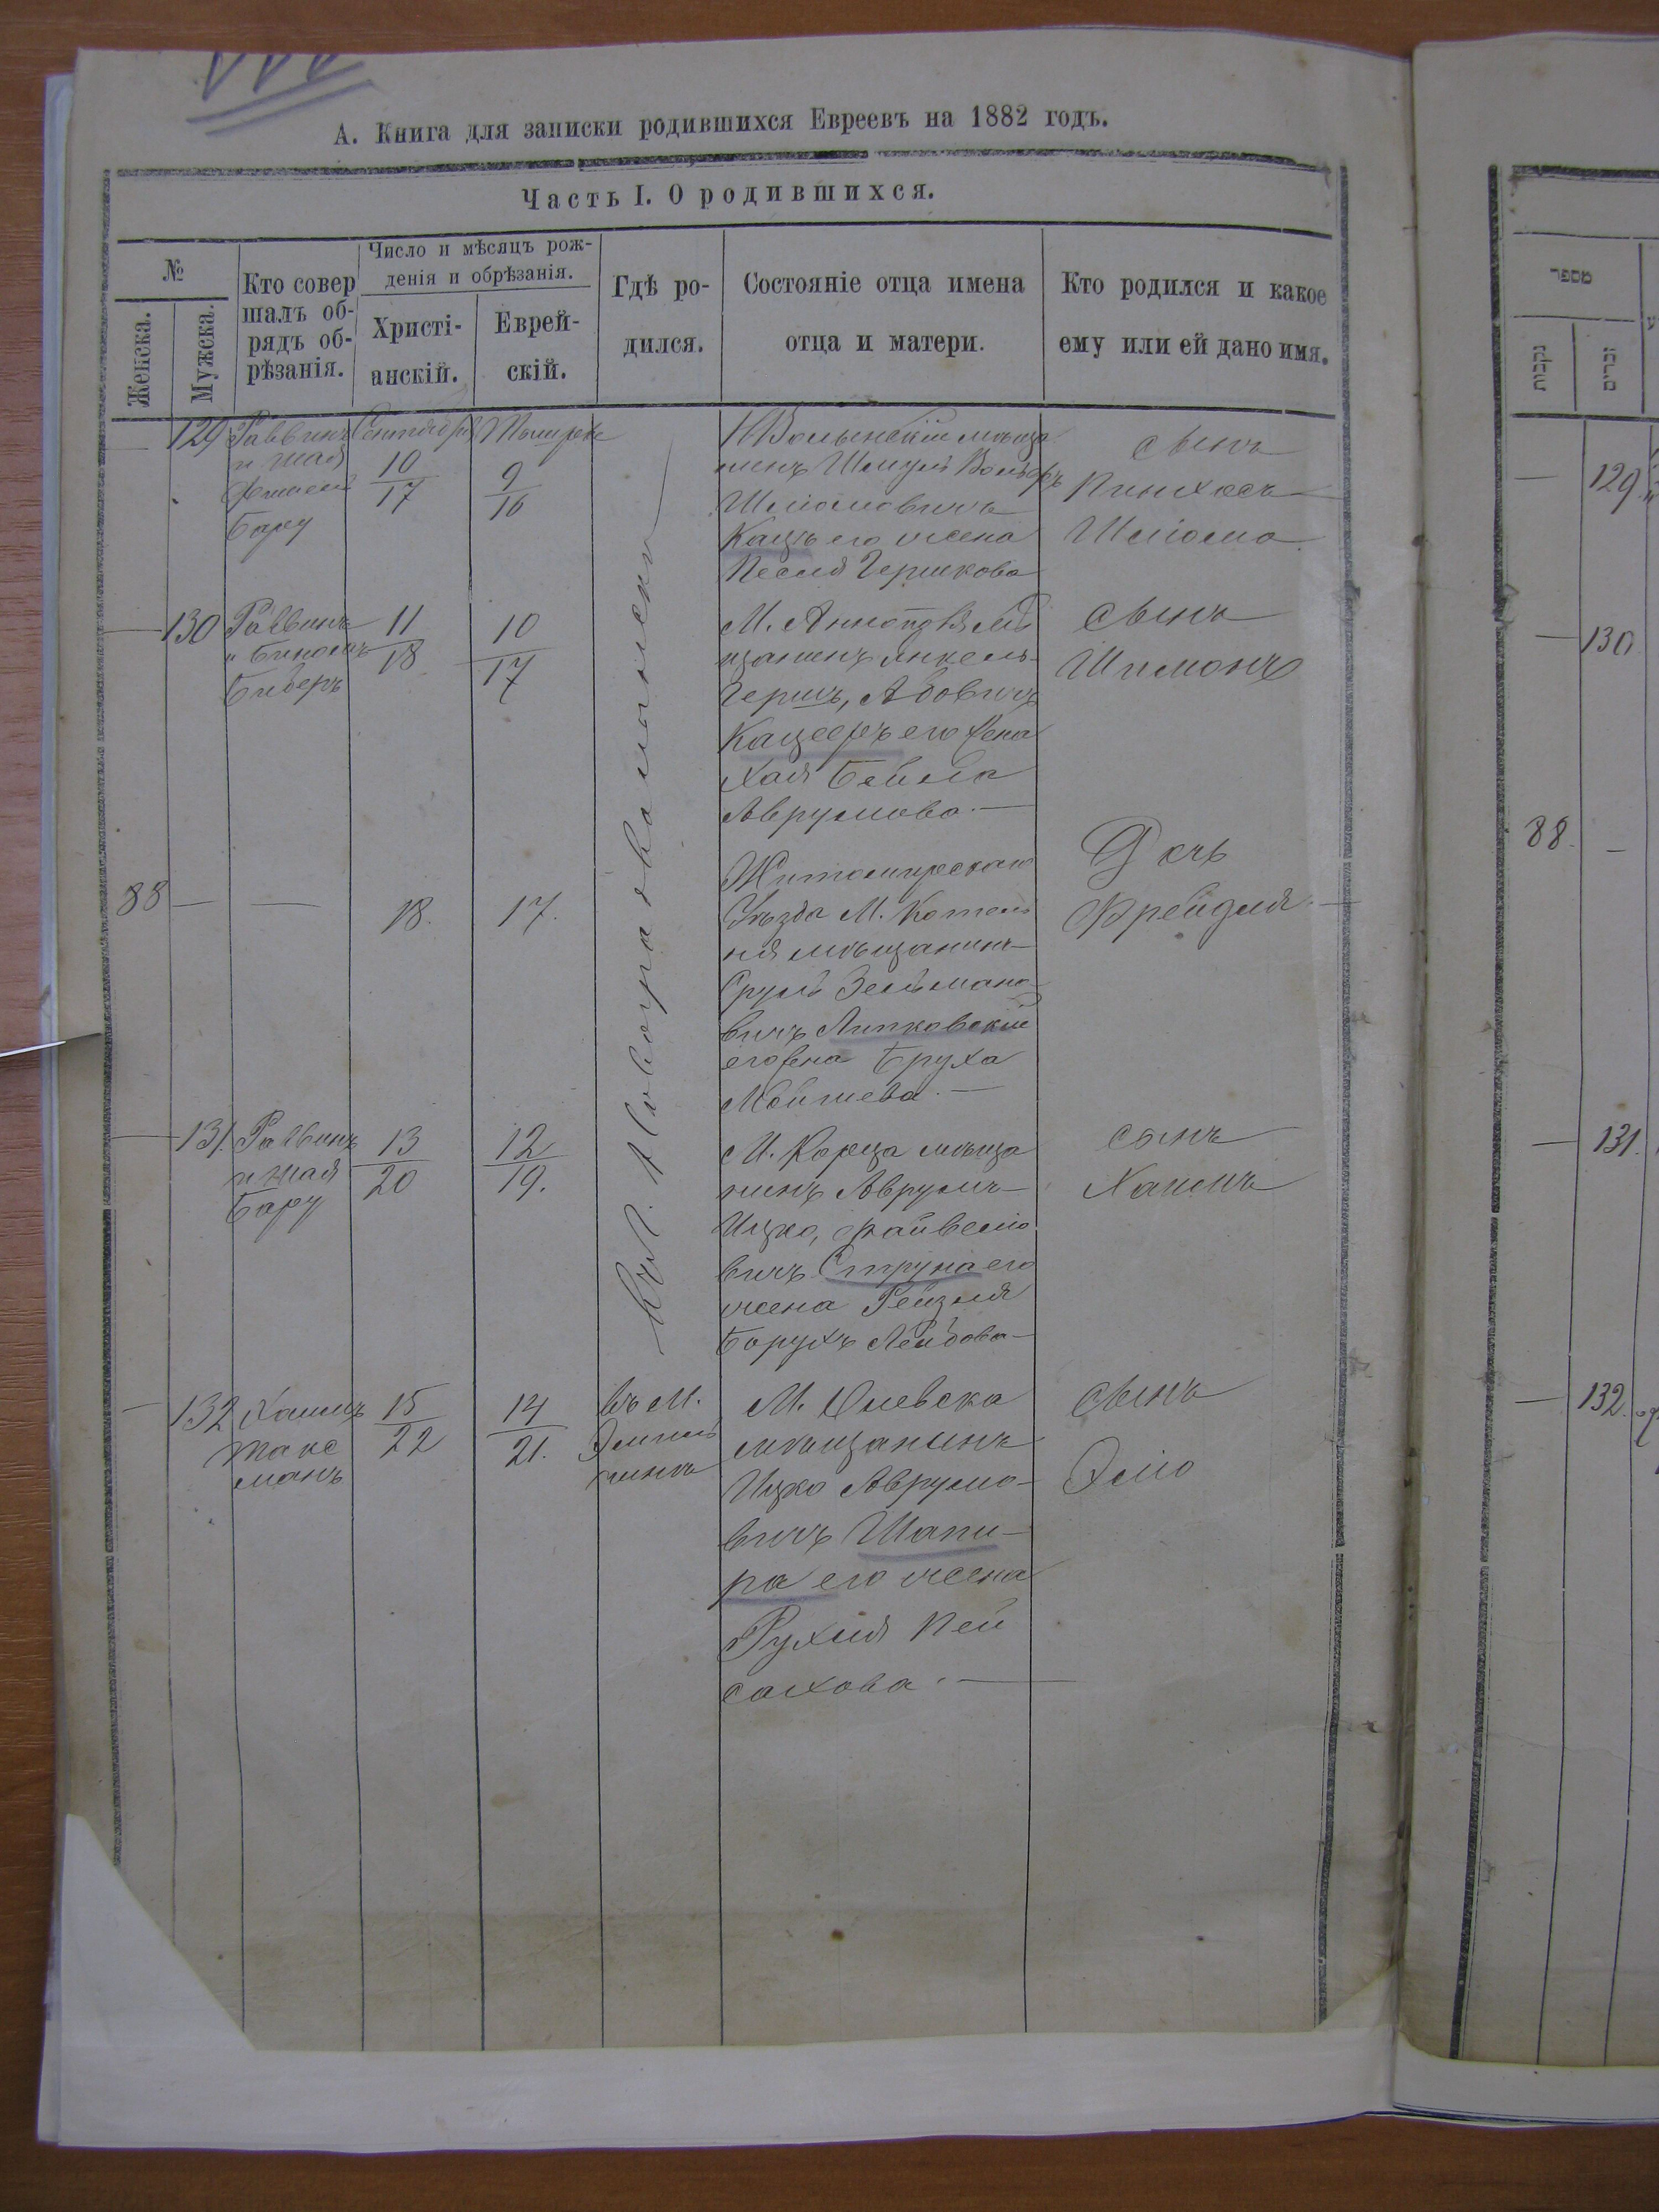 А. Книга для записки родившихся Евреевъ на 1882 годъ.
Часть I. О родившихся.
№
Женска.
Мужска.
Кто совер
шалъ об-
рядъ об-
рѣзанія.
Число и мѣсяцъ рож-
денія и обрѣзанія.
Христі-
анскій.
Еврей-
скій.
Гдѣ ро-
дился.
Состояніе отца имена
отца и матери.
Кто родился и какое
ему или ей дано имя.
129
Раввинъ
и Шая
Бару
Сентября
10
17
Тишре
9
16
Н Волынскій мѣща
нинъ Шмуль Вольфъ
Шліомовичъ
Кацъ его жена
Песля Гершкова
сынъ
Пинхосъ
Шліома
130
Раввинъ
и Биномъ
Биберъ
11
18
10
17
М. Аннополя мѣ
щанинъ Янкель
Гершъ, Абовичъ
Кацеефъ его жена
Хая Бейла
Аврумова.
сынъ
Шимонъ
88
18.
17.
Житомирскаго
Уѣзда М. Котель
ня мѣщанинъ
Сруль Зельмано
вичъ Липковскій
его жена Бруха
Мойшева.
Дочь
Фрейдля
131.
Раввинъ
и Шая
Бару
13
20
12
19.
М. Корца мѣща
нинъ Аврумъ
Ицко, Файвелю
вичъ Струна его
жена Рейзля
Борухъ Лейбова
сынъ
Хаимъ
132
Хаимъ
Такс
манъ
15
22
14
21.
Въ М.
Эмиль
чинѣ
М. Олевска
мѣщанинъ
Ицко Аврумо-
вичъ Шапи-
ра его жена
Рухля Пей
сахова.
сынъ
Элио
מספר
נקבות
זכרים
129
130
88.
131.
132.